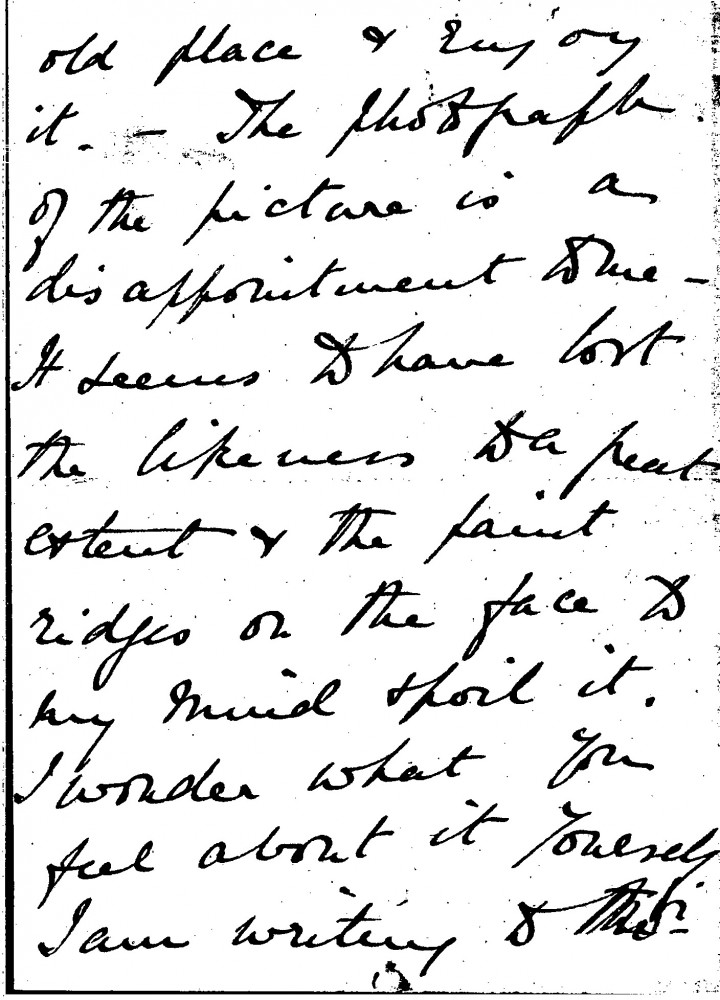 old place & enjoy
it. – The photograph
of the picture is a
disappointment to me –
It seems to have lost
the likeness to a great
extent & the paint
ridges on the face to
my mind spoil it.
I wonder what you
feel about it yourself
I am writing to